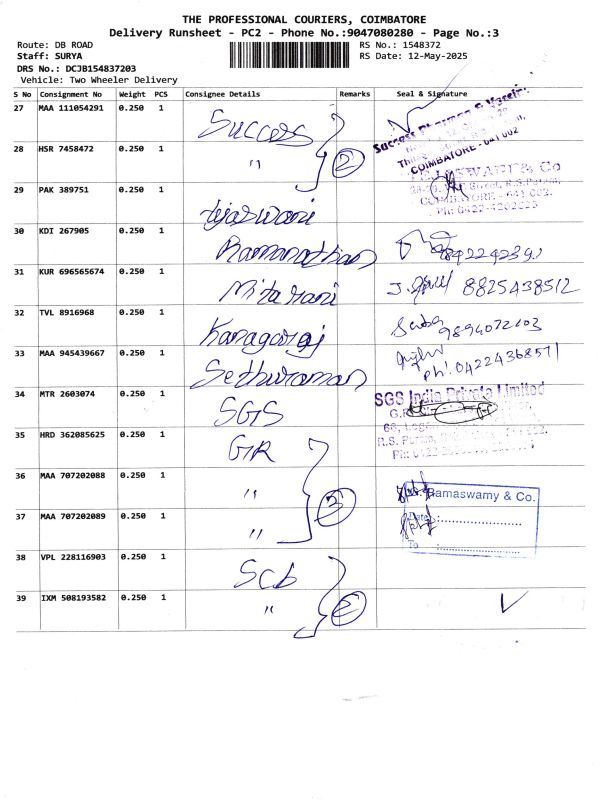 THE PROFESSIONAL COURIERS, COIMBATORE
Delivery Runsheet - PC2 - Phone No.:9047080280 - Page No.:3
Route: DB ROAD
RS No.: 1548372
Staff: SURYA
RS Date: 12-May-2025
DRS No.: DCJB154837203
Vehicle: Two Wheeler Delivery
S No Consignment No Weight PCS Consignee Details Remarks Seal & Signature
27 MAA 111054291 0.250 1 Success
28 HSR 7458472 0.250 1 " 2
COIMBATORE - 641 002
29 PAK 389751 0.250 1 tejaswani
& Co
30 KDI 267905 0.250 1 Ramanathan
31 KUR 696565674 0.250 1 Mitarani 8825438512
32 TVL 8916968 0.250 1 Kanagaraj 9894072203
33 MAA 945439667 0.250 1 Sethuraman ph: 04224368571
34 MTR 2603074 0.250 1 SGS SGS India Private Limited
35 HRD 362085625 0.250 1 GTR
R.S. Puram,
36 MAA 707202088 0.250 1 " 3 Ramaswamy & Co.
37 MAA 707202089 0.250 1 " Date :
To :
38 VPL 228116903 0.250 1 Scb
39 IXM 508193582 0.250 1 " 2